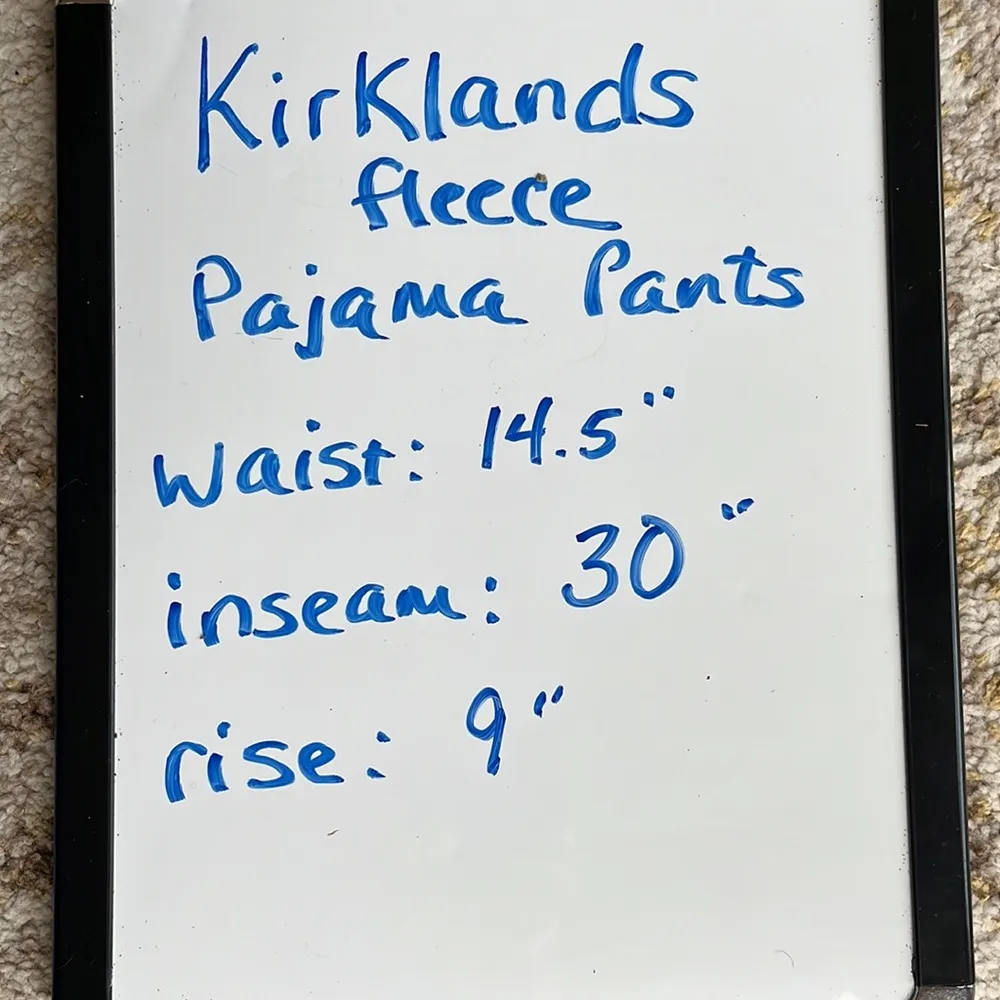 Kirklands
fleece
Pajama Pants
Waist: 14.5"
inseam: 30"
rise: 9"